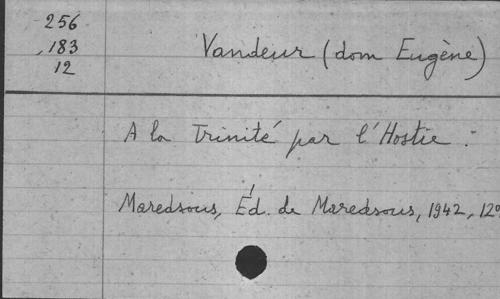 256
183
12
Vandeur (dom Eugène)
A la Trinité par l'Hostie.
Maredsous, Éd. de Maredsous, 1942, 12°